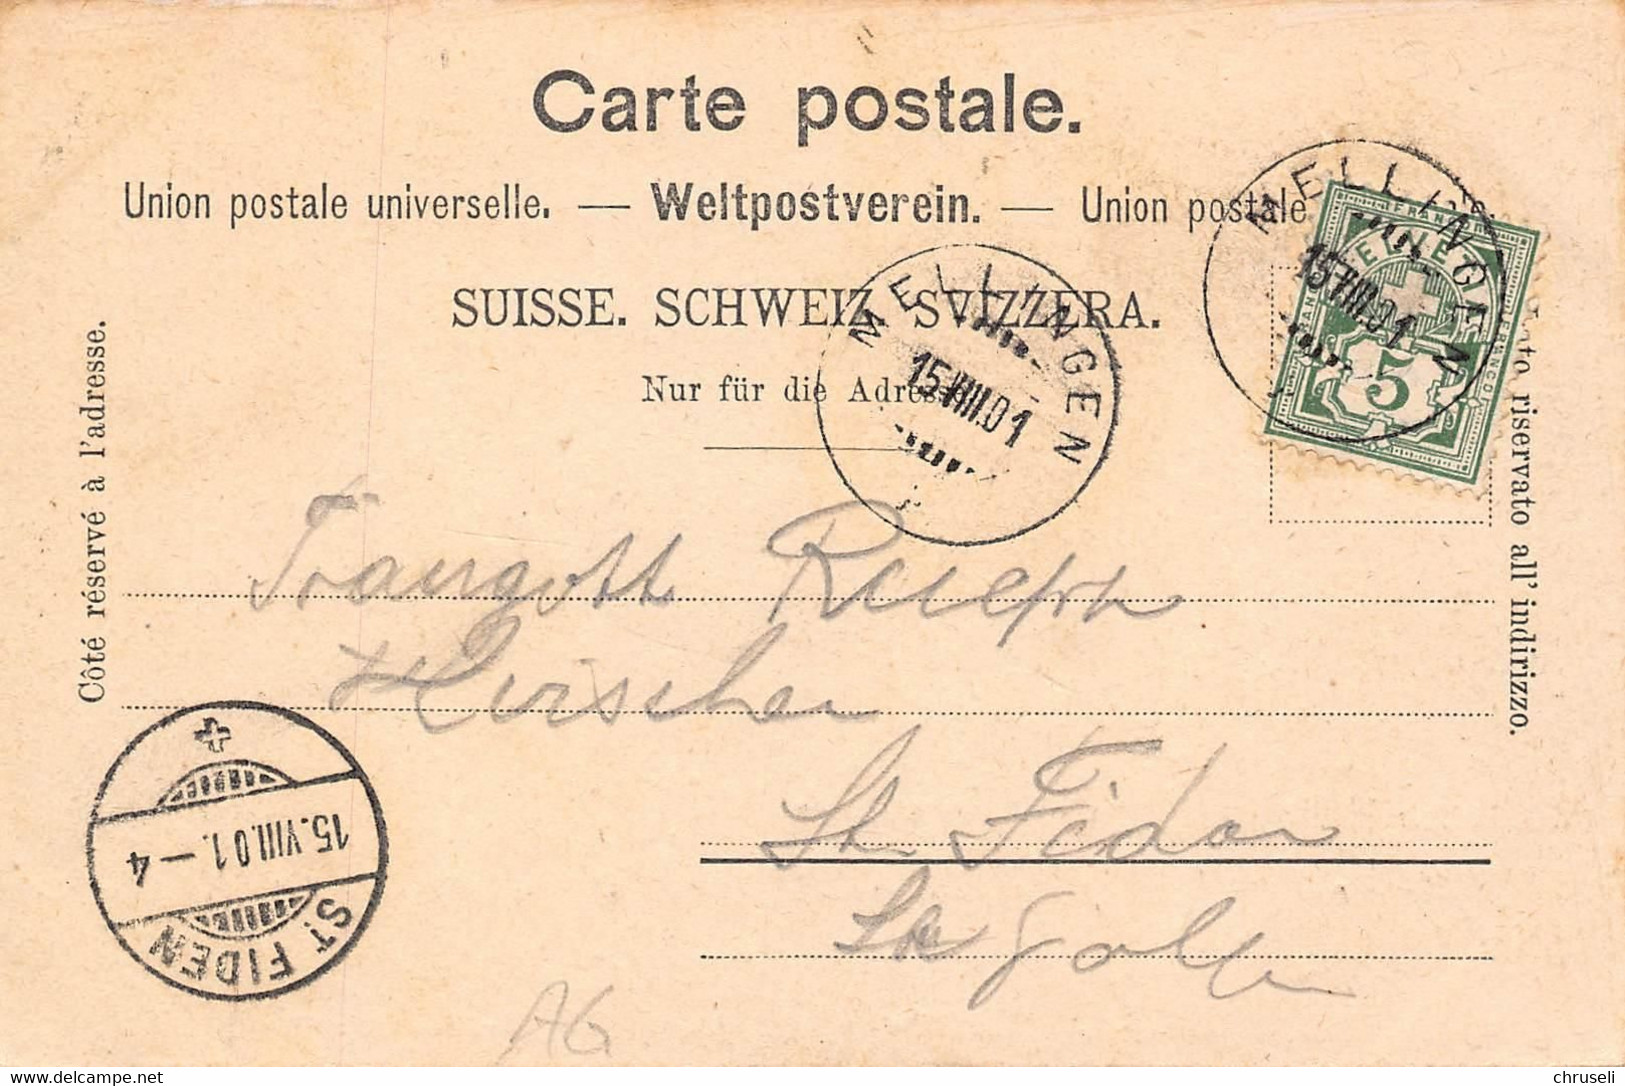 Carte postale.
Union postale universelle. — Weltpostverein. — Union postale
SUISSE. SCHWEIZ. SVIZZERA.
Nur für die Adresse
Côté réservé à l'adresse.
riservato all' indirizzo.
MELLINGEN
15 VIII.01
MELLINGEN
15 VIII.01
FRANCO
HELVETIA
5
Traugott
St. Fiden
St Gallen
15.VIII.01.–4
ST. FIDEN
AG
chruseli